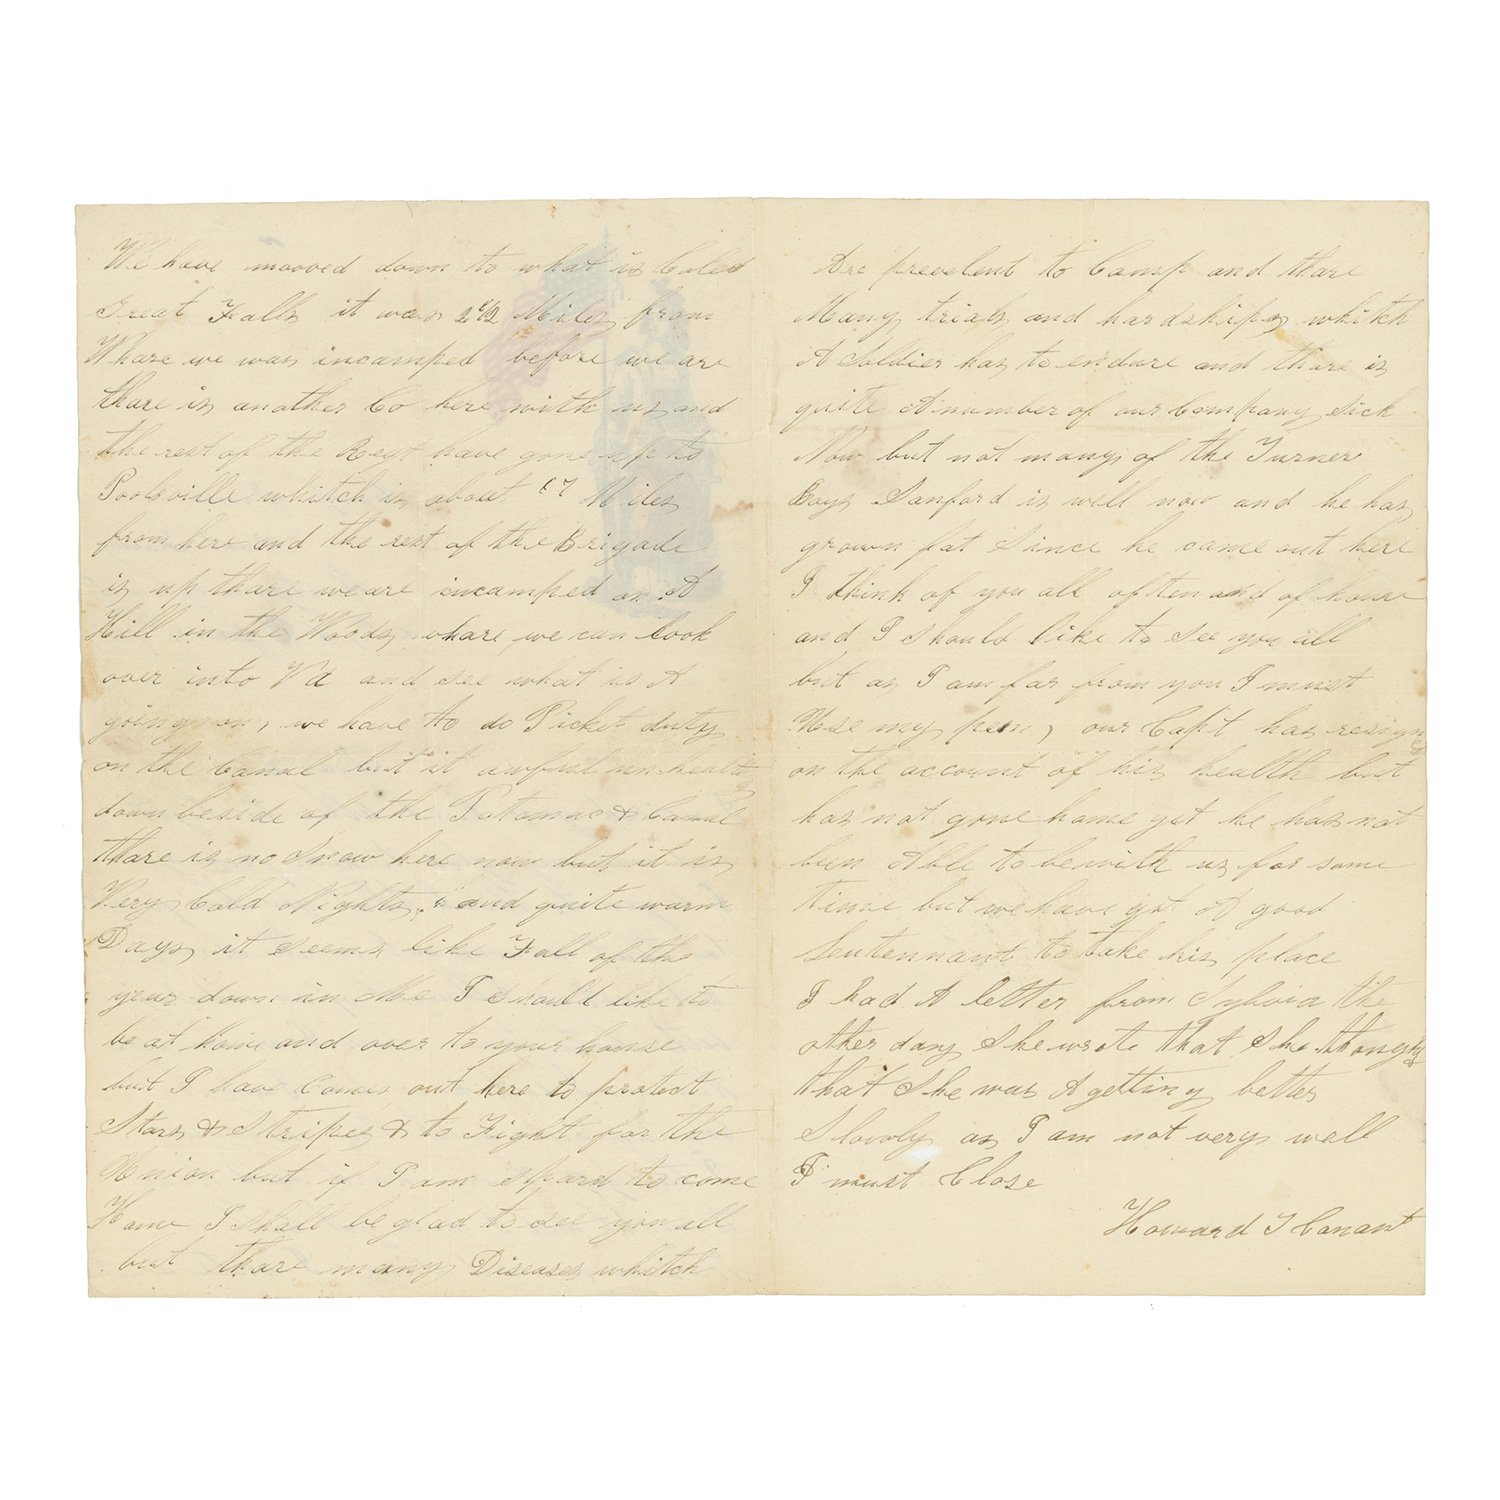 We have mooved down to what is Caled
Great Falls it was 2 1/2 Miles from
Whare we was incamped before we are
thare is another Co here with us and
the rest of the Regt have gone up to
Poolsville whitch is about 17 Miles
from here and the rest of the Brigade
is up thare we are incamped on A
Hill in the Woods whare we can look
over into Va and see what is A
going on, we have to do Picket duty
on the Canal but it awful unhealthy
down beside of the Potomac & Canal
thare is no Snow here now but it is
Very Cold Nights, and quite warm
Days it seems like Fall of the
year down in Me I should like to
be at home and over to your house
but I have Come out here to protect
Stars & Stripes & to Fight for the
Union but if I am Spard to come
Home I shall be glad to see you all
but thare many Diseases whitch
Are prevelent to Camp and thare
Many trials and hardships whitch
A Soldier has to endure and thare is
quite A number of our Company Sick
Now but not many of the Turner
Boys Sanford is well now and he has
grown fat Since he came out here
I think of you all often and of home
and I should like to see you all
but as I am far from you I must
Use my pen, our Capt has resigned
on the account of his health but
has not gone home yet he has not
bin Able to be with us for some
time but we have got A good
Leutennant to take his place
I had A letter from Sylvia the
other day She wrote that She thought
that She was A getting better
Slowly as I am not very well
I must Close
Howard J Conant